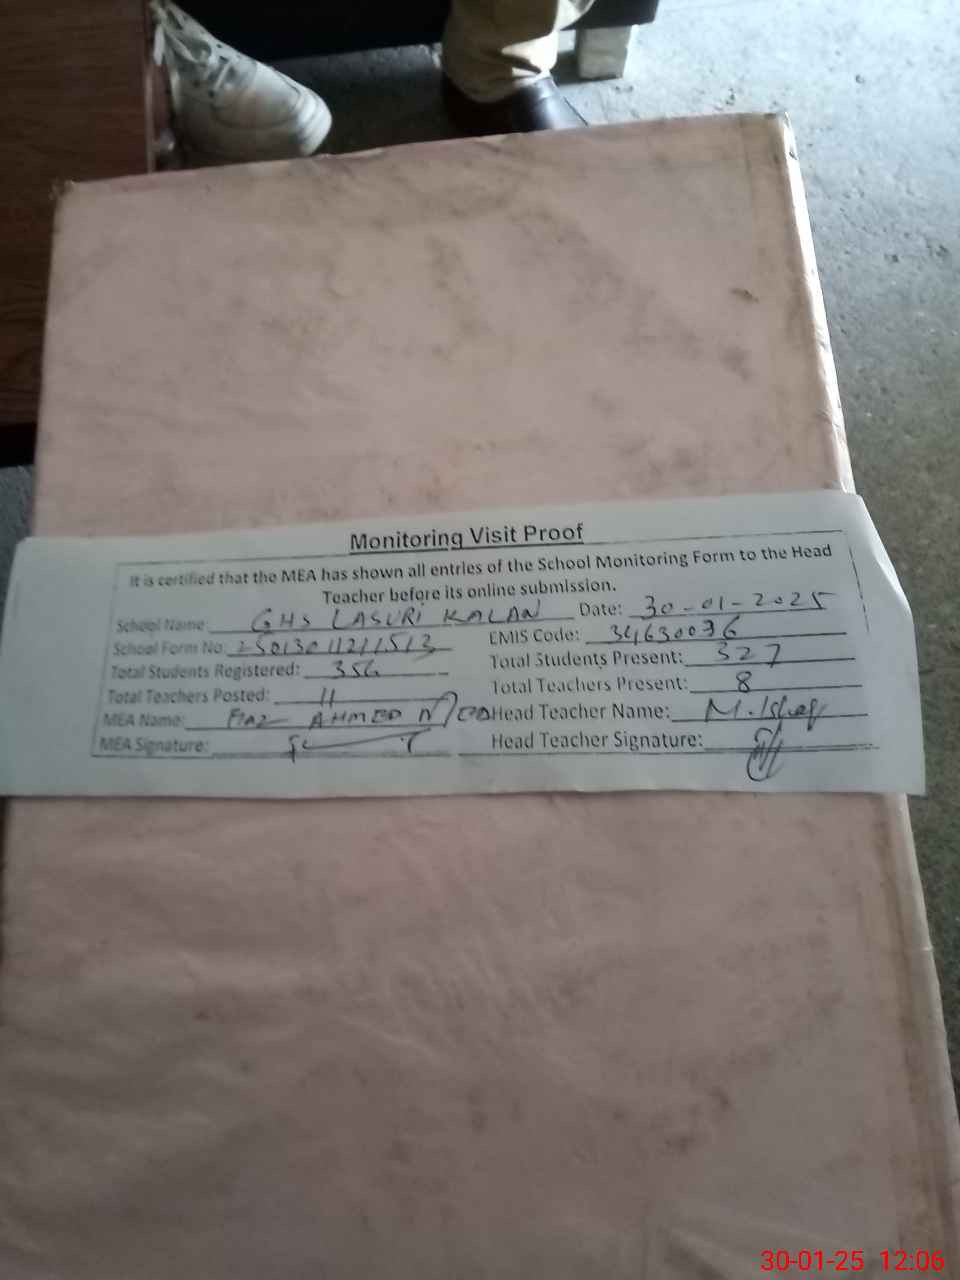 Monitoring Visit Proof
It is certified that the MEA has shown all entries of the School Monitoring Form to the Head
Teacher before its online submission.
School Name: GHS LASURI KALAN Date: 30-01-2025
School Form No: EMIS Code: 34630036
Total Students Registered: 356 Total Students Present: 327
Total Teachers Posted: 11 Total Teachers Present: 8
MEA Name: AHMED Head Teacher Name: M.Ishaq
MEA Signature: Head Teacher Signature:
30-01-25 12:06